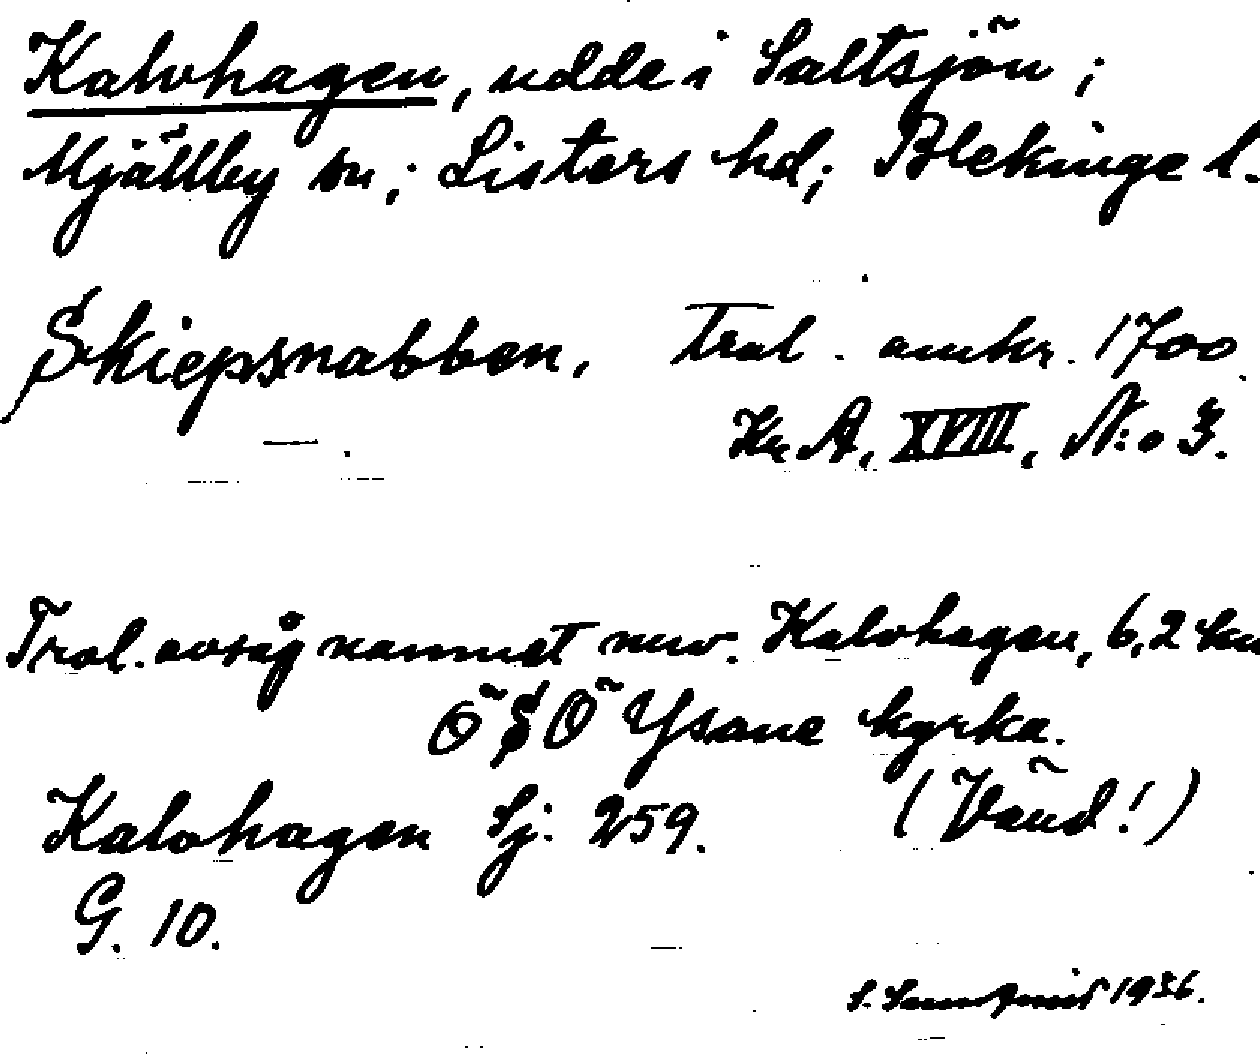 Kalvhagen, udde i Saltsjön;
Mjällby sn; Listers hd; Blekinge l.
Skiepsnabben. Trol. omkr. 1700
Kr. A, XVIII, N:o 3.
Trol. avsåg namnet nuv. Kalvhagen, 6,2 km
ÖSÖ Ysane kyrka.
Kalvhagen Sj: 259. (Vänd!)
G. 10.
1936.